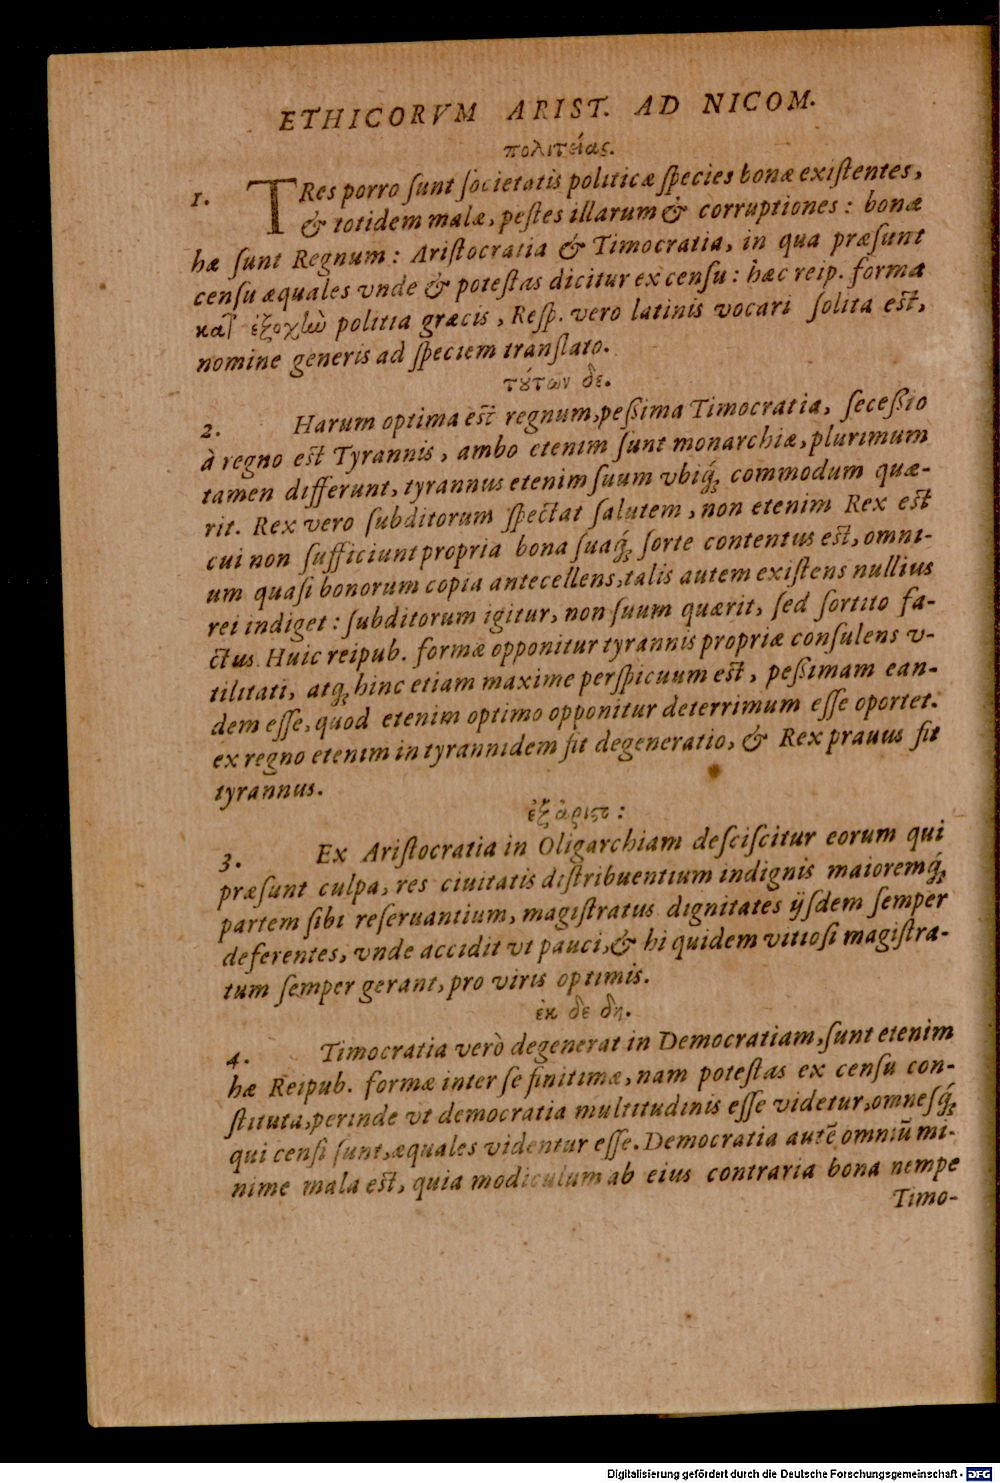 ETHICORVM ARIST. AD NICOM.
πολιτείας.
1. TRes porro ſunt ſocietatis politicæ ſpecies bonæ exiſtentes,
& totidem malæ, peſtes illarum & corruptiones: bonæ
hæ ſunt Regnum: Ariſtocratia & Timocratia, in qua præſunt
cenſu æquales vnde & poteſtas dicitur ex cenſu: hæc reip. forma
κατ ἐξοχὼ politia græcis, Reſp. vero latinis vocari ſolita eſt,
nomine generis ad ſpeciem tranſlato.
τȣ́των δε.
2. Harum optima eſt regnum, peßima Timocratia, ſeceßio
à regno eſt Tyrannis, ambo etenim ſunt monarchiæ, plurimum
tamen differunt, tyrannus etenim ſuum vbiq́; commodum quæ-
rit. Rex vero ſubditorum ſpectat ſalutem, non etenim Rex eſt
cui non ſufficiunt propria bona ſuaq́; ſorte contentus eſt, omni-
um quaſi bonorum copia antecellens, talis autem exiſtens nullius
rei indiget: ſubditorum igitur, non ſuum quærit, ſed ſortito fa-
ctus. Huic reipub. formæ opponitur tyrannis propriæ conſulens v-
tilitati, atq; hinc etiam maxime perſpicuum eſt, peßimam ean-
dem eſſe, quod etenim optimo opponitur deterrimum eſſe oportet.
ex regno etenim in tyrannidem fit degeneratio, & Rex prauus fit
tyrannus.
ἐξ ἀριστ:
3. Ex Ariſtocratia in Oligarchiam deſciſcitur eorum qui
præſunt culpa, res ciuitatis diſtribuentium indignis maioremq́;
partem ſibi reſeruantium, magiſtratus dignitates ijſdem ſemper
deferentes, vnde accidit vt pauci, & hi quidem vitioſi magiſtra-
tum ſemper gerant, pro viris optimis.
ἐκ δε δη.
4. Timocratia verò degenerat in Democratiam, ſunt etenim
hæ Reipub. formæ inter ſe finitimæ, nam poteſtas ex cenſu con-
ſtituta, perinde vt democratia multitudinis eſſe videtur, omneſq́;
qui cenſi ſunt, æquales videntur eſſe. Democratia autē omniū mi-
nime mala eſt, quia modiculum ab eius contraria bona nempe
Timo-
Digitalisierung gefördert durch die Deutsche Forschungsgemeinschaft - DFG